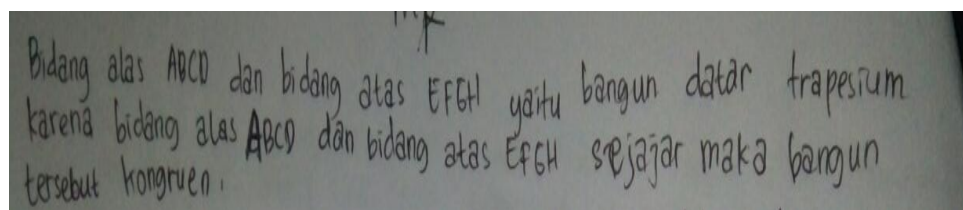 Bidang alas ABCD dan bidang atas EFGH yaitu bangun datar trapesium
karena bidang alas ABCD dan bidang atas EFGH sejajar maka bangun
tersebut kongruen.